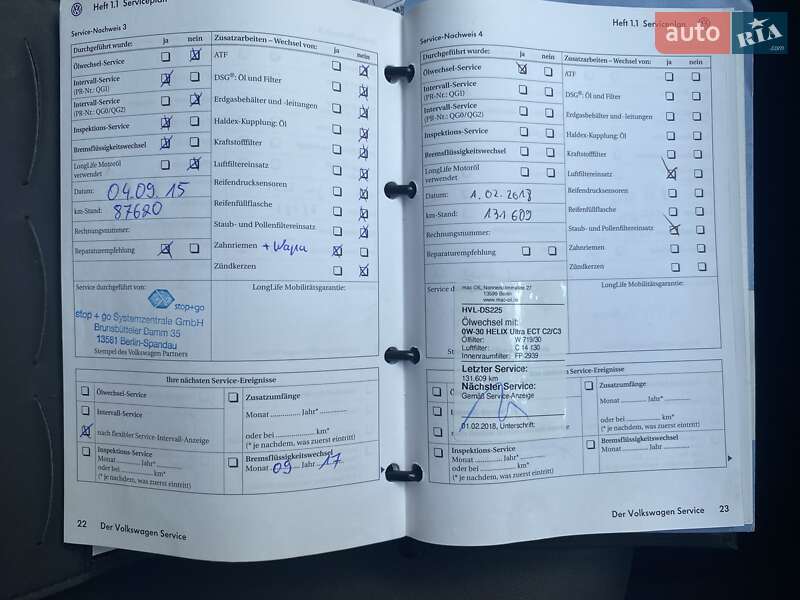 Heft 1.1 Serviceplan
Service-Nachweis 3
Durchgeführt wurde: ja nein
Ölwechsel-Service
Intervall-Service
(PR-Nr.: QG1)
Intervall-Service
(PR-Nr.: QG0/QG2)
Inspektions-Service
Bremsflüssigkeitswechsel
LongLife Motoröl
verwendet
Datum: 04.09.15
km-Stand: 87620
Rechnungsnummer:
Reparaturempfehlung
Zusatzarbeiten – Wechsel von: ja nein
ATF
DSG®: Öl und Filter
Erdgasbehälter und -leitungen
Haldex-Kupplung: Öl
Kraftstofffilter
Luftfiltereinsatz
Reifendrucksensoren
Reifenfüllflasche
Staub- und Pollenfiltereinsatz
Zahnriemen + Wapu
Zündkerzen
Service durchgeführt von:
stop+go
stop + go Systemzentrale GmbH
Brunsbütteler Damm 35
13581 Berlin-Spandau
Stempel des Volkswagen Partners
LongLife Mobilitätsgarantie:
Ihre nächsten Service-Ereignisse
Ölwechsel-Service
Intervall-Service
nach flexibler Service-Intervall-Anzeige
Inspektions-Service
Monat ........... Jahr* ...........
oder bei ........... km*
(* je nachdem, was zuerst eintritt)
Zusatzumfänge
Monat ........... Jahr* ...........
oder bei ........... km*
(* je nachdem, was zuerst eintritt)
Bremsflüssigkeitswechsel
Monat 09 Jahr 17
22 Der Volkswagen Service
Heft 1.1 Serviceplan
Service-Nachweis 4
Durchgeführt wurde: ja nein
Ölwechsel-Service
Intervall-Service
(PR-Nr.: QG1)
Intervall-Service
(PR-Nr.: QG0/QG2)
Inspektions-Service
Bremsflüssigkeitswechsel
LongLife Motoröl
verwendet
Datum: 1.02.2018
km-Stand: 131609
Rechnungsnummer:
Reparaturempfehlung
Zusatzarbeiten – Wechsel von: ja nein
ATF
DSG®: Öl und Filter
Erdgasbehälter und -leitungen
Haldex-Kupplung: Öl
Kraftstofffilter
Luftfiltereinsatz
Reifendrucksensoren
Reifenfüllflasche
Staub- und Pollenfiltereinsatz
Zahnriemen
Zündkerzen
LongLife Mobilitätsgarantie:
13599 Berlin
HVL-DS225
Ölwechsel mit:
0W-30 HELIX Ultra ECT C2/C3
Ölfilter: W 719/30
Luftfilter: C 14 130
Innenraumfilter: FP 2939
Letzter Service:
131.609 km
Nächster Service:
Gemäß Service-Anzeige
01.02.2018, Unterschrift:
Service-Ereignisse
Zusatzumfänge
Monat ........... Jahr* ...........
oder bei ........... km*
(* je nachdem, was zuerst eintritt)
Inspektions-Service
Monat ........... Jahr* ...........
oder bei ........... km*
(* je nachdem, was zuerst eintritt)
Bremsflüssigkeitswechsel
Monat ........... Jahr ...........
Der Volkswagen Service 23
auto RIA
.com